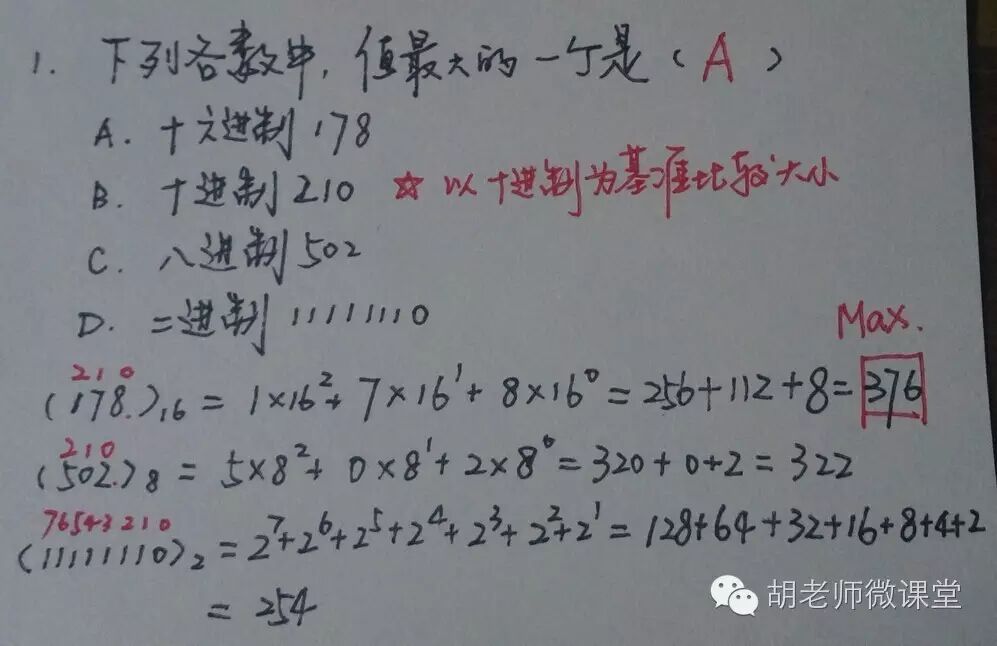 1. 下列各数中，值最大的一个是（A）
A. 十六进制178
B. 十进制210 ☆以十进制为基准比较大小
C. 八进制502
D. 二进制11111110
Max.
2 1 0
(178.)₁₆ = 1×16²+ 7×16¹+ 8×16⁰ = 256+112+8= 376
2 1 0
(502.)₈ = 5×8²+ 0×8¹+ 2×8⁰ = 320+0+2 = 322
7 6 5 4 3 2 1 0
(11111110)₂ = 2⁷+2⁶+2⁵+2⁴+2³+2²+2¹ = 128+64+32+16+8+4+2
= 254
胡老师微课堂